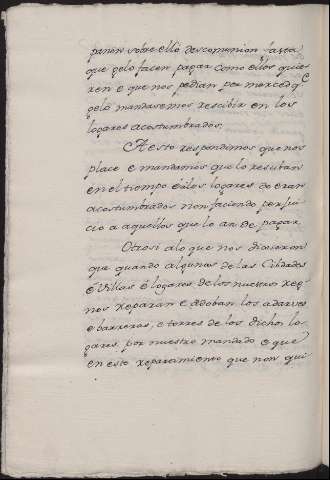 ponen sobre ello descomunion fasta
que gelo facen pagar como ellos quie
ren e que nos pedian por merced q̃
gelo mandasemos rescibir en los
logares acostumbrados.
A esto respondimos que nos
place e mandamos que lo resciban
en el tiempo e en los logares do eran
acostumbrados non faciendo perjui
cio a aquellos que lo an de pagar
Otrosi a lo que nos dixieron
que quando algunas de las Cibdades
e Villas e logares de los nuestros reg
nos reparan e adoban los adarves
e barreras, e torres de los dichos lo
gares, por nuestro mandado, e que
en este repartimiento que non qui